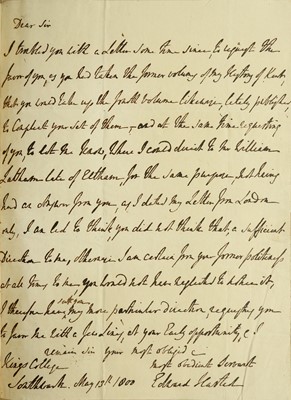 Dear Sir
I troubled you with a Letter some time since to request the
favor of you, as you had taken the former volumes of my History of Kent,
that you would take up the fourth volume likewise, lately published
to complete your set of them — and at the same time requesting
of you, to let me know, where I could direct to Mr William
Latham late of Eltham, for the same purpose. Not having
had an answer from you, as I dated my Letter from London
only, I am led to think, you did not think that, a sufficient
Direction to me, otherwise I am certain from your former politeness
at all times to me you would not have neglected to notice it,
I therefore my more particular direction requesting you
to favor me with a few lines, at your early opportunity, & I
remain Sir your most obliged
most obedient servant
Kings College
Southwark May 13th 1800
Edward Hasted